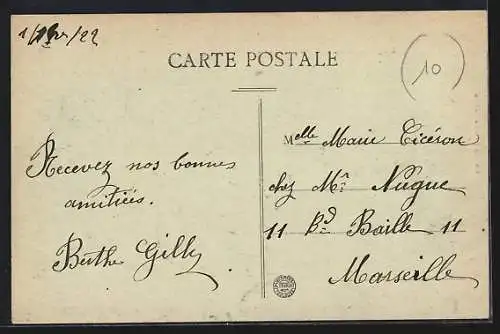 CARTE POSTALE
10
Recevez nos bonnes
amitiées.
Berthe Gilly
Melle Marie Cicéron
chez Mr Nugue
11 Bd Baille 11
Marseille